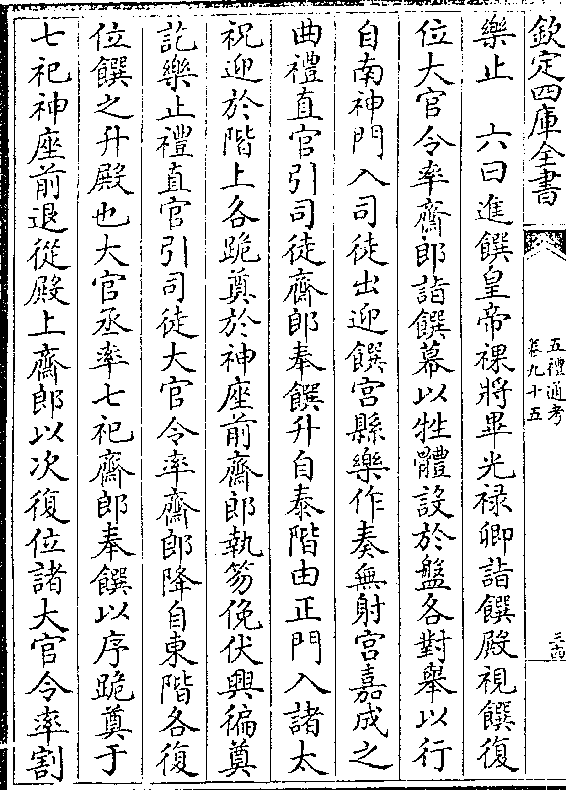 欽定四庫全書
五禮通考
卷九十五
三四
樂止　六曰進饌皇帝祼將畢光禄卿詣饌殿視饌復
位大官令率齋郎詣饌幕以牲體設於盤各對舉以行
自南神門入司徒出迎饌宮縣樂作奏無射宮嘉成之
曲禮直官引司徒齋郎奉饌升自泰階由正門入諸太
祝迎於階上各跪奠於神座前齋郎執笏俛伏興徧奠
訖樂止禮直官引司徒大官令率齋郎降自東階各復
位饌之升殿也大官丞率七祀齋郎奉饌以序跪奠于
七祀神座前退從殿上齋郎以次復位諸大官令率割